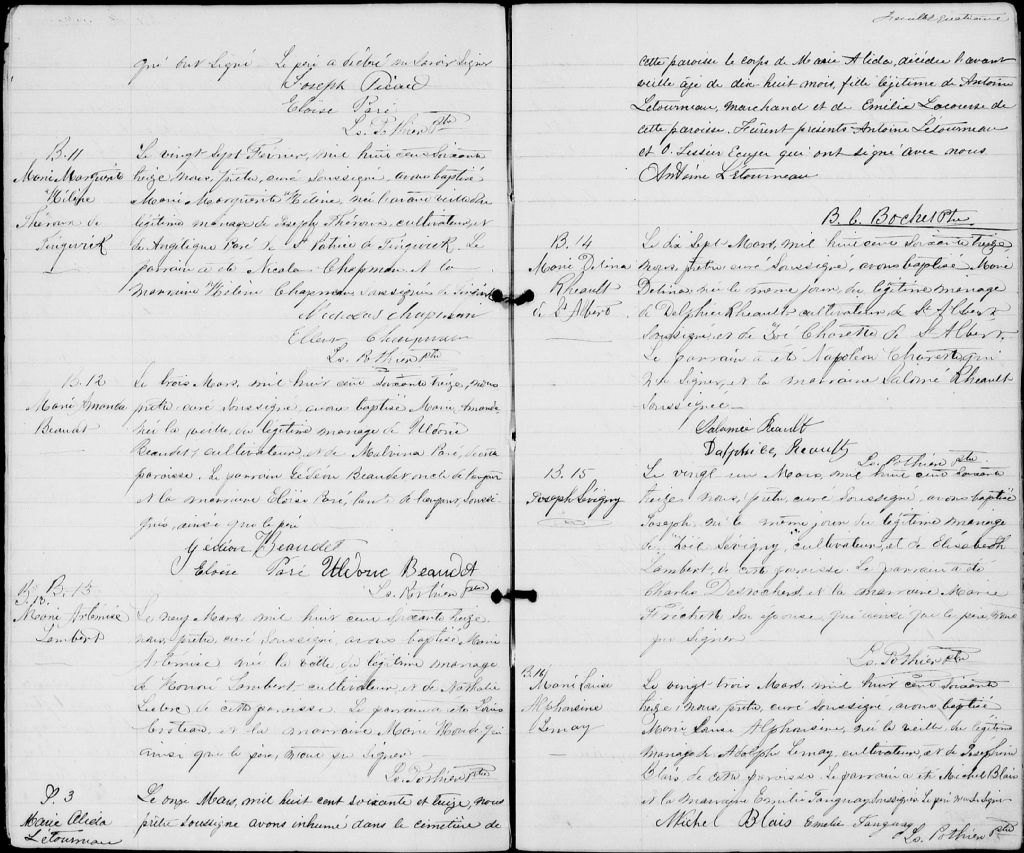 qui ont signé Le père a déclaré ne savoir signer
Joseph Picard
Eloïse Paré
Ls. Pothier Ptre
B. 11
Marie Marguerite
Hélène
Théroux de
Tingwick
Le vingt sept Février, mil huit cent soixante
treize, nous, prêtre, curé soussigné, avons baptisé
Marie Marguerite Hélène, née l'avant veille du
légitime mariage de Joseph Théroux, cultivateur, et
de Angélique Paré de St Patrice de Tingwick. Le
parrain a été Nicolas Chapman et la
marraine Hélène Chapman soussignés
Nicholas Chapman
Ellen Chapman
Ls. Pothier Ptre
B. 12
Marie Amanda
Beaudet
Le trois Mars, mil huit cent soixante treize, nous
prêtre curé soussigné, avons baptisé Marie Amanda
née la veille, du légitime mariage de Uldoric
Beaudet, cultivateur, et de Malvina Paré, de cette
paroisse. Le parrain Gédéon Beaudet oncle de
et la marraine Eloïse Paré, tante de soussi
gnés, ainsi que le père
Gédéon Beaudet
Eloïse Paré Uldoric Beaudet
Ls. Pothier Ptre
B. 13
B. 13.
Marie Artémise
Lambert
Le neuf Mars, mil huit cent soixante treize,
nous, prêtre, curé soussigné, avons baptisé Marie
Artémise née la veille du légitime mariage
de Honoré Lambert cultivateur, et de Nathalie
Leclerc de cette paroisse. Le parrain a été Louis
et la marraine Marie qui
ainsi que le père, n'ont su signer
Ls. Pothier Ptre
S. 3
Marie Alida
Létourneau
Le onze Mars, mil huit cent soixante et treize, nous
prêtre soussigné avons inhumé dans le cimetière de
cette paroisse le corps de Marie Alida, décédée l'avant
veille âgé de dix-huit mois, fille légitime de Antoine
Létourneau, marchand et de Emilia Lacourse de
cette paroisse. Furent présents Antoine Létourneau
et O. Lessier Ecuyer qui ont signé avec nous
Antoine Létourneau
B. Le Bochet Ptre
B. 14
Marie Delina
Rheault
de St Albert
Le dix sept Mars, mil huit cent soixante treize
nous, prêtre curé soussigné, avons baptisé Marie
Delina, née le même jour du légitime mariage
de Delphice Rheault cultivateur, de St Albert
soussigné, et de Zoé Charette de St Albert,
Le parrain a été Napoléon Charette qui
n'a signer, et la marraine Salomé Rheault
soussignée
Salamée Reault
Dalphice Reault
Ls. Pothier Ptre
B. 15
Joseph Sévigny
Le vingt un Mars, mil huit cent soixante
treize, nous, prêtre, curé soussigné, avons baptisé
Joseph, né le même jour du légitime mariage
de Joël Sévigny, cultivateur, et de Elisabeth
Lambert, de cette paroisse. Le parrain a été
Charles Desrochers et la marraine Marie
Fréchette son épouse, qui ainsi que le père, n'ont
pu signer
Ls. Pothier Ptre
B. 16
Marie Louise
Alphonsine
Lemay
Le vingt trois Mars, mil huit cent soixante
treize, nous, prêtre, curé soussigné, avons baptisé
Marie Louise Alphonsine, née la veille du légitime
mariage de Adolphe Lemay, cultivateur, et de Joséphine
Blais de cette paroisse. Le parrain a été Michel Blais
et la marraine Emélie Tanguay soussignés Le père n'a su signer
Michel Blais Emelie Tanguay
Ls. Pothier Ptre